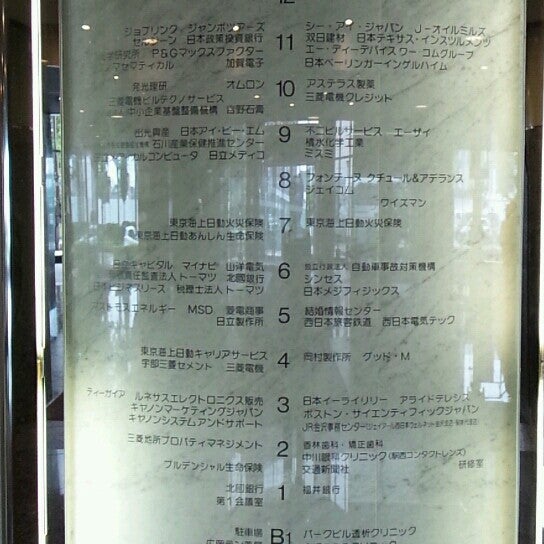 12
ジョブリンク ジャンボツアーズ
日本政策投資銀行
P&Gマックスファクター
加賀電子
11
シー・アイ・ジャパン J-オイルミルズ
双日建材 日本テキサス・インスツルメンツ
エー・ディーデバイス ワー・コムグループ
日本ベーリンガーインゲルハイム
発光理研 オムロン
三菱電機ビルテクノサービス
中小企業基盤整備機構 吉野石膏
10
アステラス製薬
三菱電機クレジット
出光興産 日本アイ・ビー・エム
石川産業保健推進センター
日立メディコ
9
不二ビルサービス エーザイ
積水化学工業
ミスミ
8
フォンテーヌ クチュール&アデランス
ジェイコム
ワイズマン
東京海上日動火災保険
東京海上日動あんしん生命保険
7
東京海上日動火災保険
日立キャピタル マイナビ 山洋電気
有限責任監査法人トーマツ 北國銀行
日本ビジネスリース 税理士法人トーマツ
6
独立行政法人 自動車事故対策機構
シンセス
日本メジフィジックス
アストモスエネルギー MSD 菱電商事
日立製作所
5
結婚情報センター
西日本旅客鉄道 西日本電気テック
東京海上日動キャリアサービス
宇部三菱セメント 三菱電機
4
岡村製作所 グッド・M
ティーガイア ルネサスエレクトロニクス販売
キヤノンマーケティングジャパン
キヤノンシステムアンドサポート
3
日本イーライリリー アライドテレシス
ボストン・サイエンティフィックジャパン
JR金沢事務センター
三菱地所プロパティマネジメント
プルデンシャル生命保険
2
香林歯科・矯正歯科
中川眼科クリニック(駅西コンタクトレンズ)
交通新聞社 研修室
北國銀行
第1会議室
1
福井銀行
駐車場
B1
パークビル透析クリニック